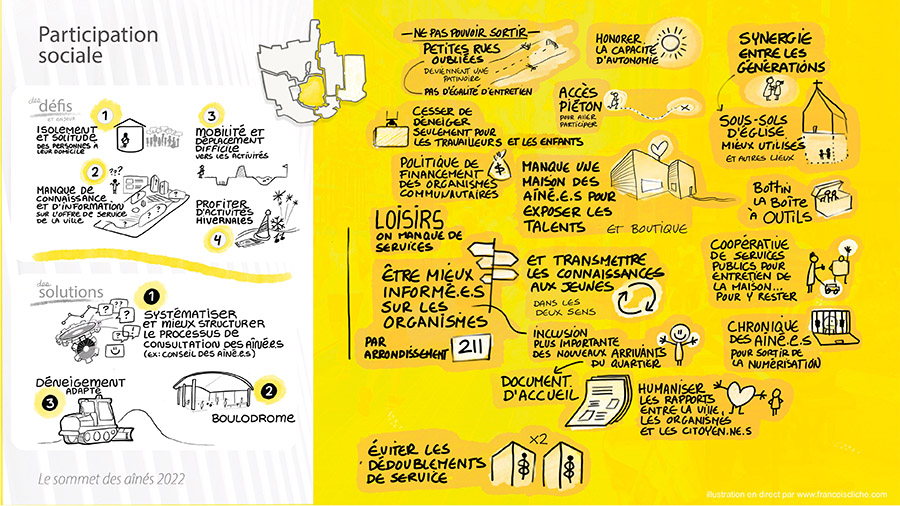 Participation
sociale
des
défis
et enjeux
1
ISOLEMENT
ET SOLITUDE
DES PERSONNES À
LEUR DOMICILE
2
???
MANQUE DE
CONNAISSANCE
ET D'INFORMATION
SUR L'OFFRE DE SERVICE
DE LA VILLE
3
MOBILITÉ ET
DÉPLACEMENT
DIFFICILE
VERS LES ACTIVITÉS
PROFITER
D'ACTIVITÉS
HIVERNALES
4
des
solutions
1
SYSTÉMATISER
ET MIEUX STRUCTURER
LE PROCESSUS DE
CONSULTATION DES AÎNÉ.E.S
(EX: CONSEIL DES AÎNÉ.E.S)
DÉNEIGEMENT
ADAPTÉ
3
2
BOULODROME
Le sommet des aînés 2022
NE PAS POUVOIR SORTIR
PETITES RUES
OUBLIÉES
DEVIENNENT UNE
PATINOIRE
PAS D'ÉGALITÉ D'ENTRETIEN
HONORER
LA CAPACITÉ
D'AUTONOMIE
SYNERGIE
ENTRE LES
GÉNÉRATIONS
CESSER DE
DÉNEIGER
SEULEMENT POUR
LES TRAVAILLEURS ET LES ENFANTS
ACCÈS
PIÉTON
POUR ALLER
PARTICIPER
SOUS-SOLS
D'ÉGLISE
MIEUX UTILISÉS
ET AUTRES LIEUX
POLITIQUE DE
FINANCEMENT
DES ORGANISMES
COMMUNAUTAIRES
$
MANQUE UNE
MAISON DES
AÎNÉ.E.S POUR
EXPOSER LES
TALENTS
ET BOUTIQUE
BOTTIN
LA BOÎTE
À OUTILS
LOISIRS
ON MANQUE DE
SERVICES
ÊTRE MIEUX
INFORMÉ.E.S
SUR LES
ORGANISMES
PAR
ARRONDISSEMENT
211
ET TRANSMETTRE
LES CONNAISSANCES
AUX JEUNES
DANS LES
DEUX SENS
COOPÉRATIVE
DE SERVICES
PUBLICS POUR
ENTRETIEN DE
LA MAISON...
POUR Y RESTER
INCLUSION
PLUS IMPORTANTE
DES NOUVEAUX ARRIVANTS
DU QUARTIER
CHRONIQUE
DES AINÉ.E.S
POUR SORTIR DE
LA NUMÉRISATION
DOCUMENT
D'ACCUEIL
HUMANISER
LES RAPPORTS
ENTRE LA VILLE,
LES ORGANISMES
ET LES CITOYEN.NE.S
ÉVITER LES
DÉDOUBLEMENTS
DE SERVICE
X2
illustration en direct par www.francoiscliche.com